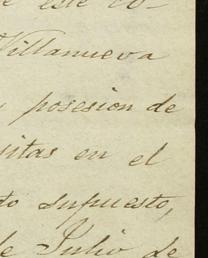 de este co-
Villanueva
posesion de
sitas en el
to supuesto,
de Julio de